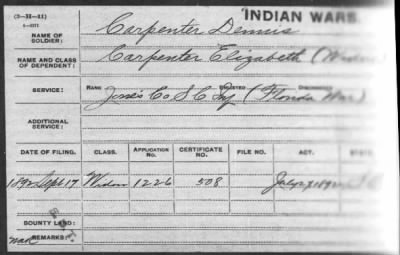 (3-SI-XI) 'INDIAN WARS.
NAME OF SOLDIER: Carpenter Dennis
NAME AND CLASS OF DEPENDENT: Carpenter Elizabeth (Widow)
RANK ENLISTED DISCHARGED
SERVICE: Jones Co S C Inf (Florida War)
ADDITIONAL SERVICE:
DATE OF FILING. CLASS. APPLICATION NO. CERTIFICATE NO. FILE NO. ACT. STATE
1892 Sept 17 Widow 1226 508 July 27 1892
BOUNTY LAND:
REMARKS: